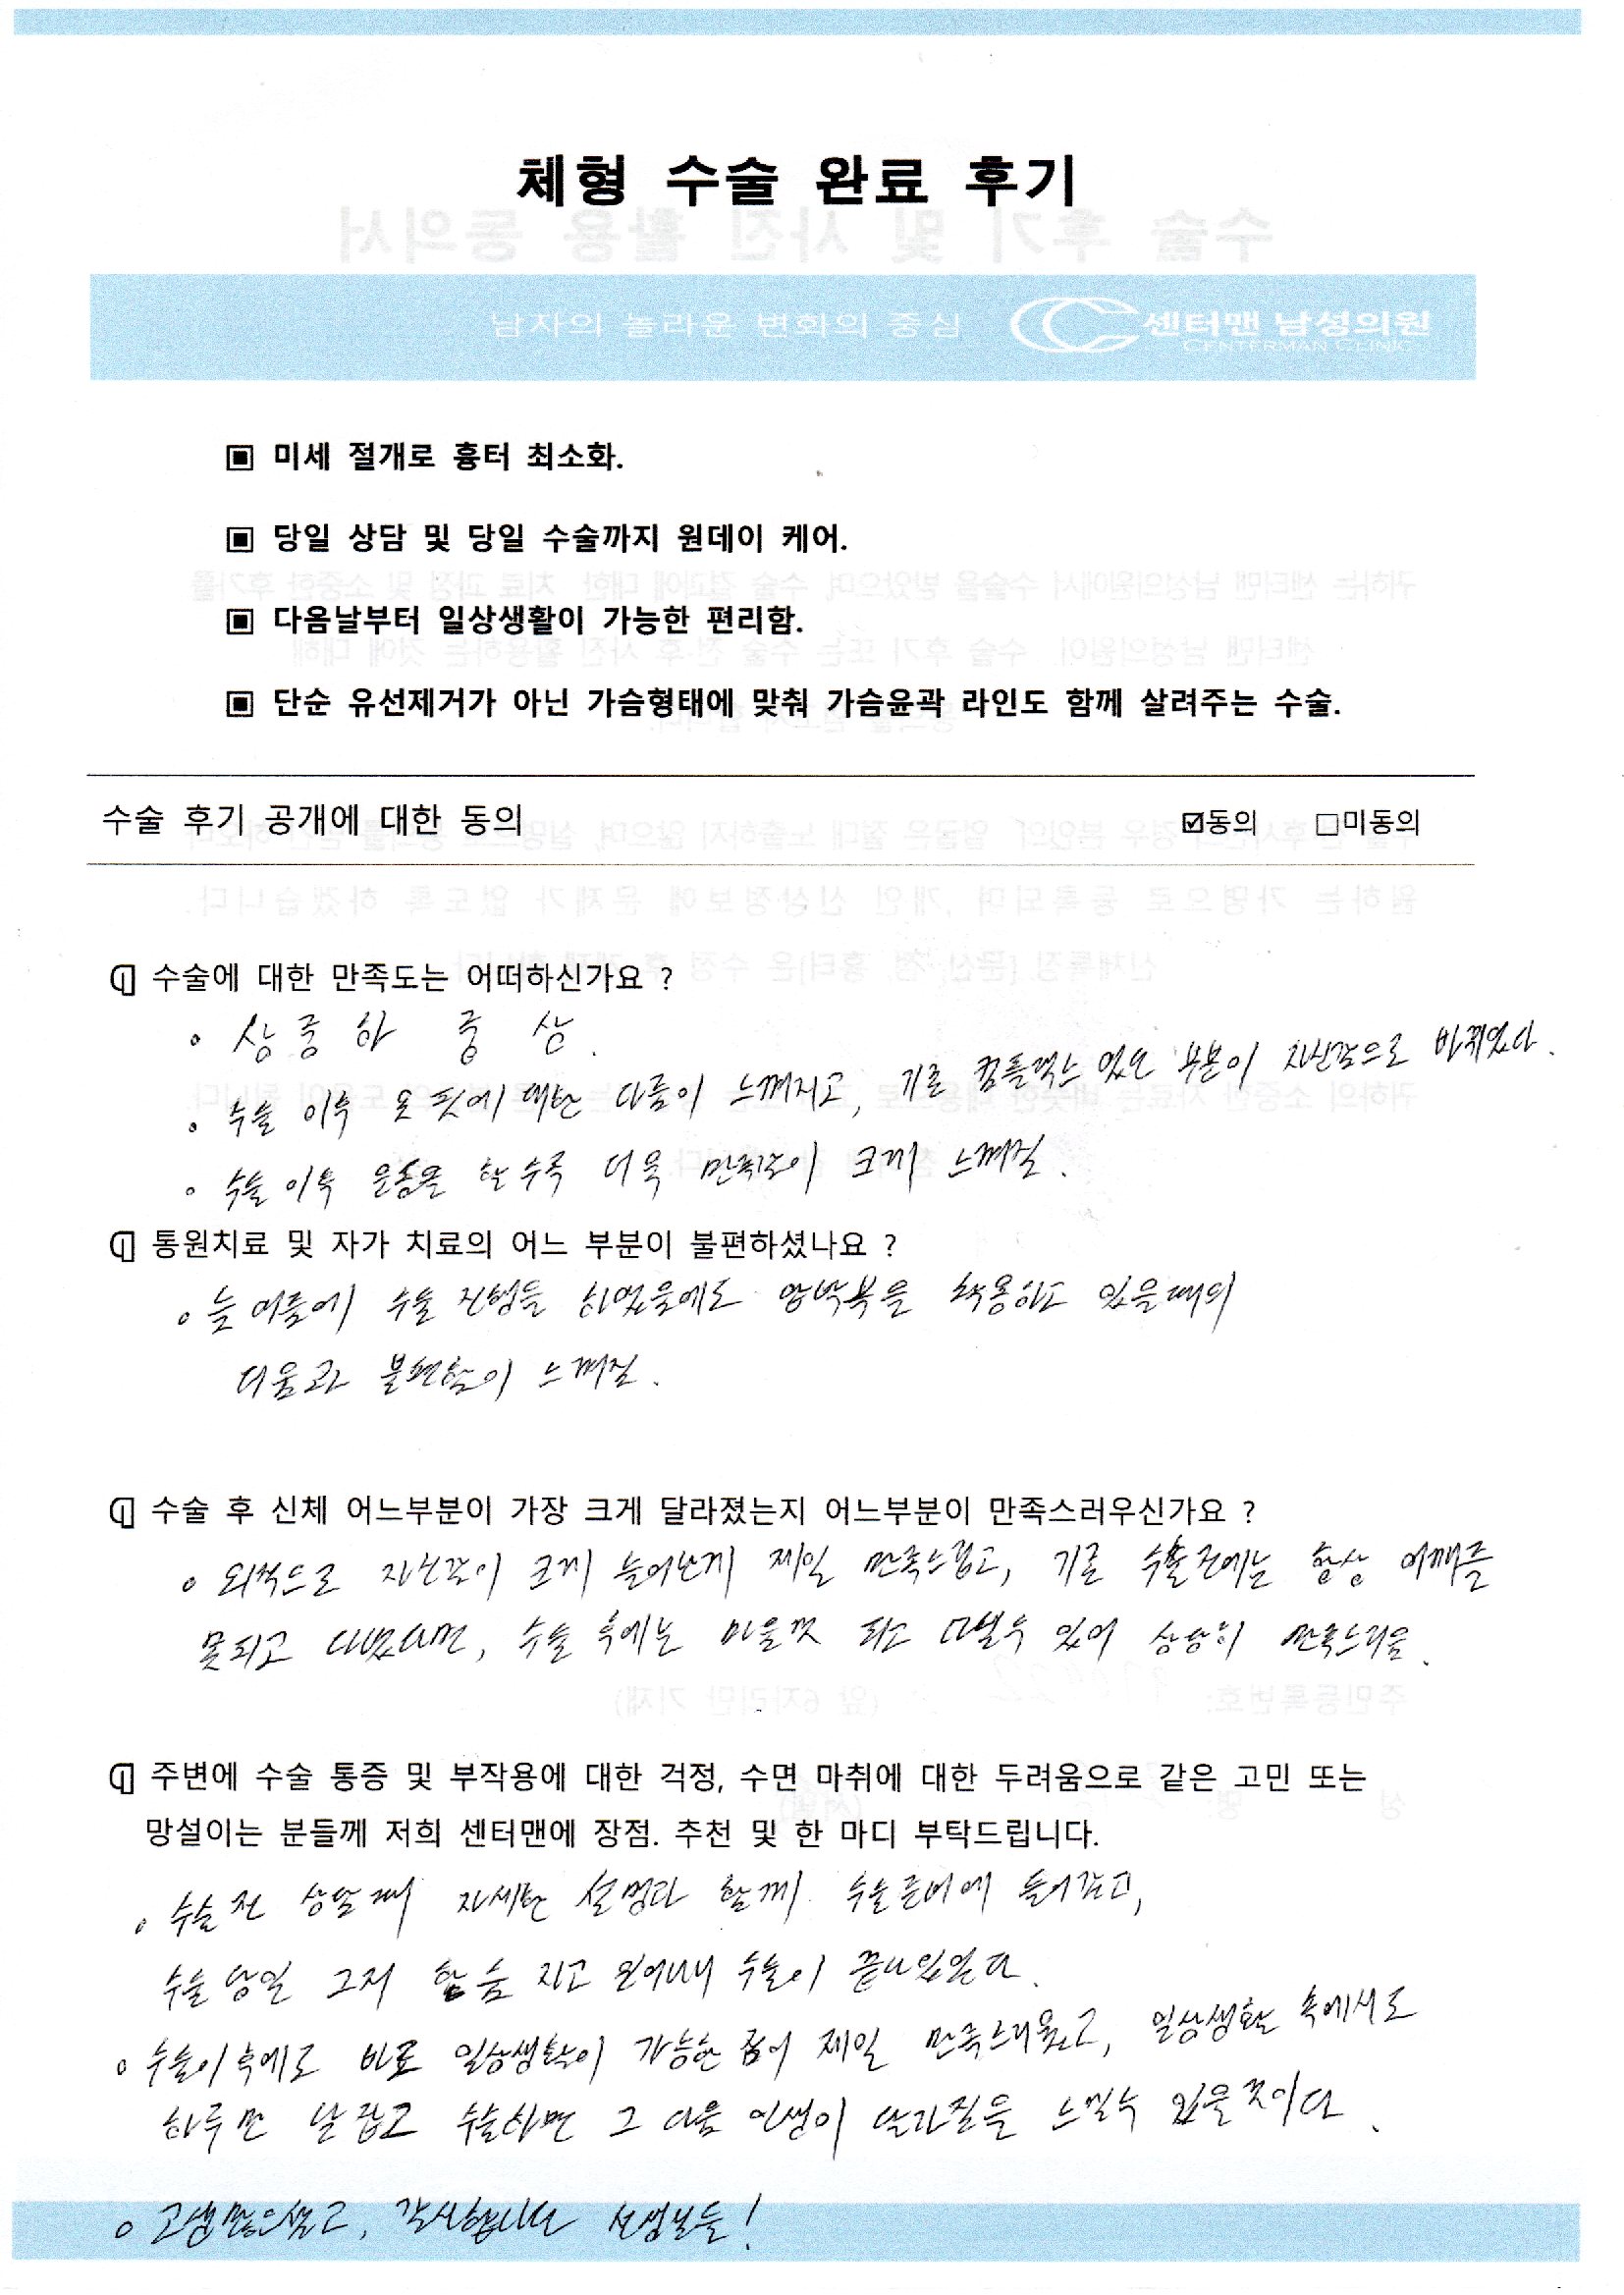 체형 수술 완료 후기
남자의 놀라운 변화의 중심 센터맨 남성의원
CENTERMAN CLINIC
▣ 미세 절개로 흉터 최소화.
▣ 당일 상담 및 당일 수술까지 원데이 케어.
▣ 다음날부터 일상생활이 가능한 편리함.
▣ 단순 유선제거가 아닌 가슴형태에 맞춰 가슴윤곽 라인도 함께 살려주는 수술.
수술 후기 공개에 대한 동의 ☑동의 □미동의
수술에 대한 만족도는 어떠하신가요 ?
∘ 상 중 하 중 상.
∘ 수술 이후 옷 핏에 대한 다름이 느껴지고, 기존 컴플렉스 였던 부분이 자신감으로 바뀌었다.
∘ 수술 이후 운동을 할수록 더욱 만족감이 크게 느껴짐.
통원치료 및 자가 치료의 어느 부분이 불편하셨나요 ?
∘ 늦여름에 수술 진행을 하였음에도 압박복을 착용하고 있을때의
더움과 불편함이 느껴짐.
수술 후 신체 어느부분이 가장 크게 달라졌는지 어느부분이 만족스러우신가요 ?
∘ 외적으로 자신감이 크게 늘어난게 제일 만족스럽고, 기존 수술전에는 항상 어깨를
못피고 다녔다면, 수술 후에는 마음껏 피고 다닐수 있어 상당히 만족스러움.
주변에 수술 통증 및 부작용에 대한 걱정, 수면 마취에 대한 두려움으로 같은 고민 또는
망설이는 분들께 저희 센터맨에 장점. 추천 및 한 마디 부탁드립니다.
∘ 수술 전 상담때 자세한 설명과 함께 수술준비에 들어갔고,
수술 당일 그저 한숨 자고 일어나니 수술이 끝나있었다.
∘ 수술이후에도 바로 일상생활이 가능한 점이 제일 만족스러웠고, 일상생활 속에서도
하루만 날 잡고 수술하면 그 다음 인생이 달라짐을 느낄수 있을것이다.
∘ 고생많으셨고, 감사합니다 선생님들!